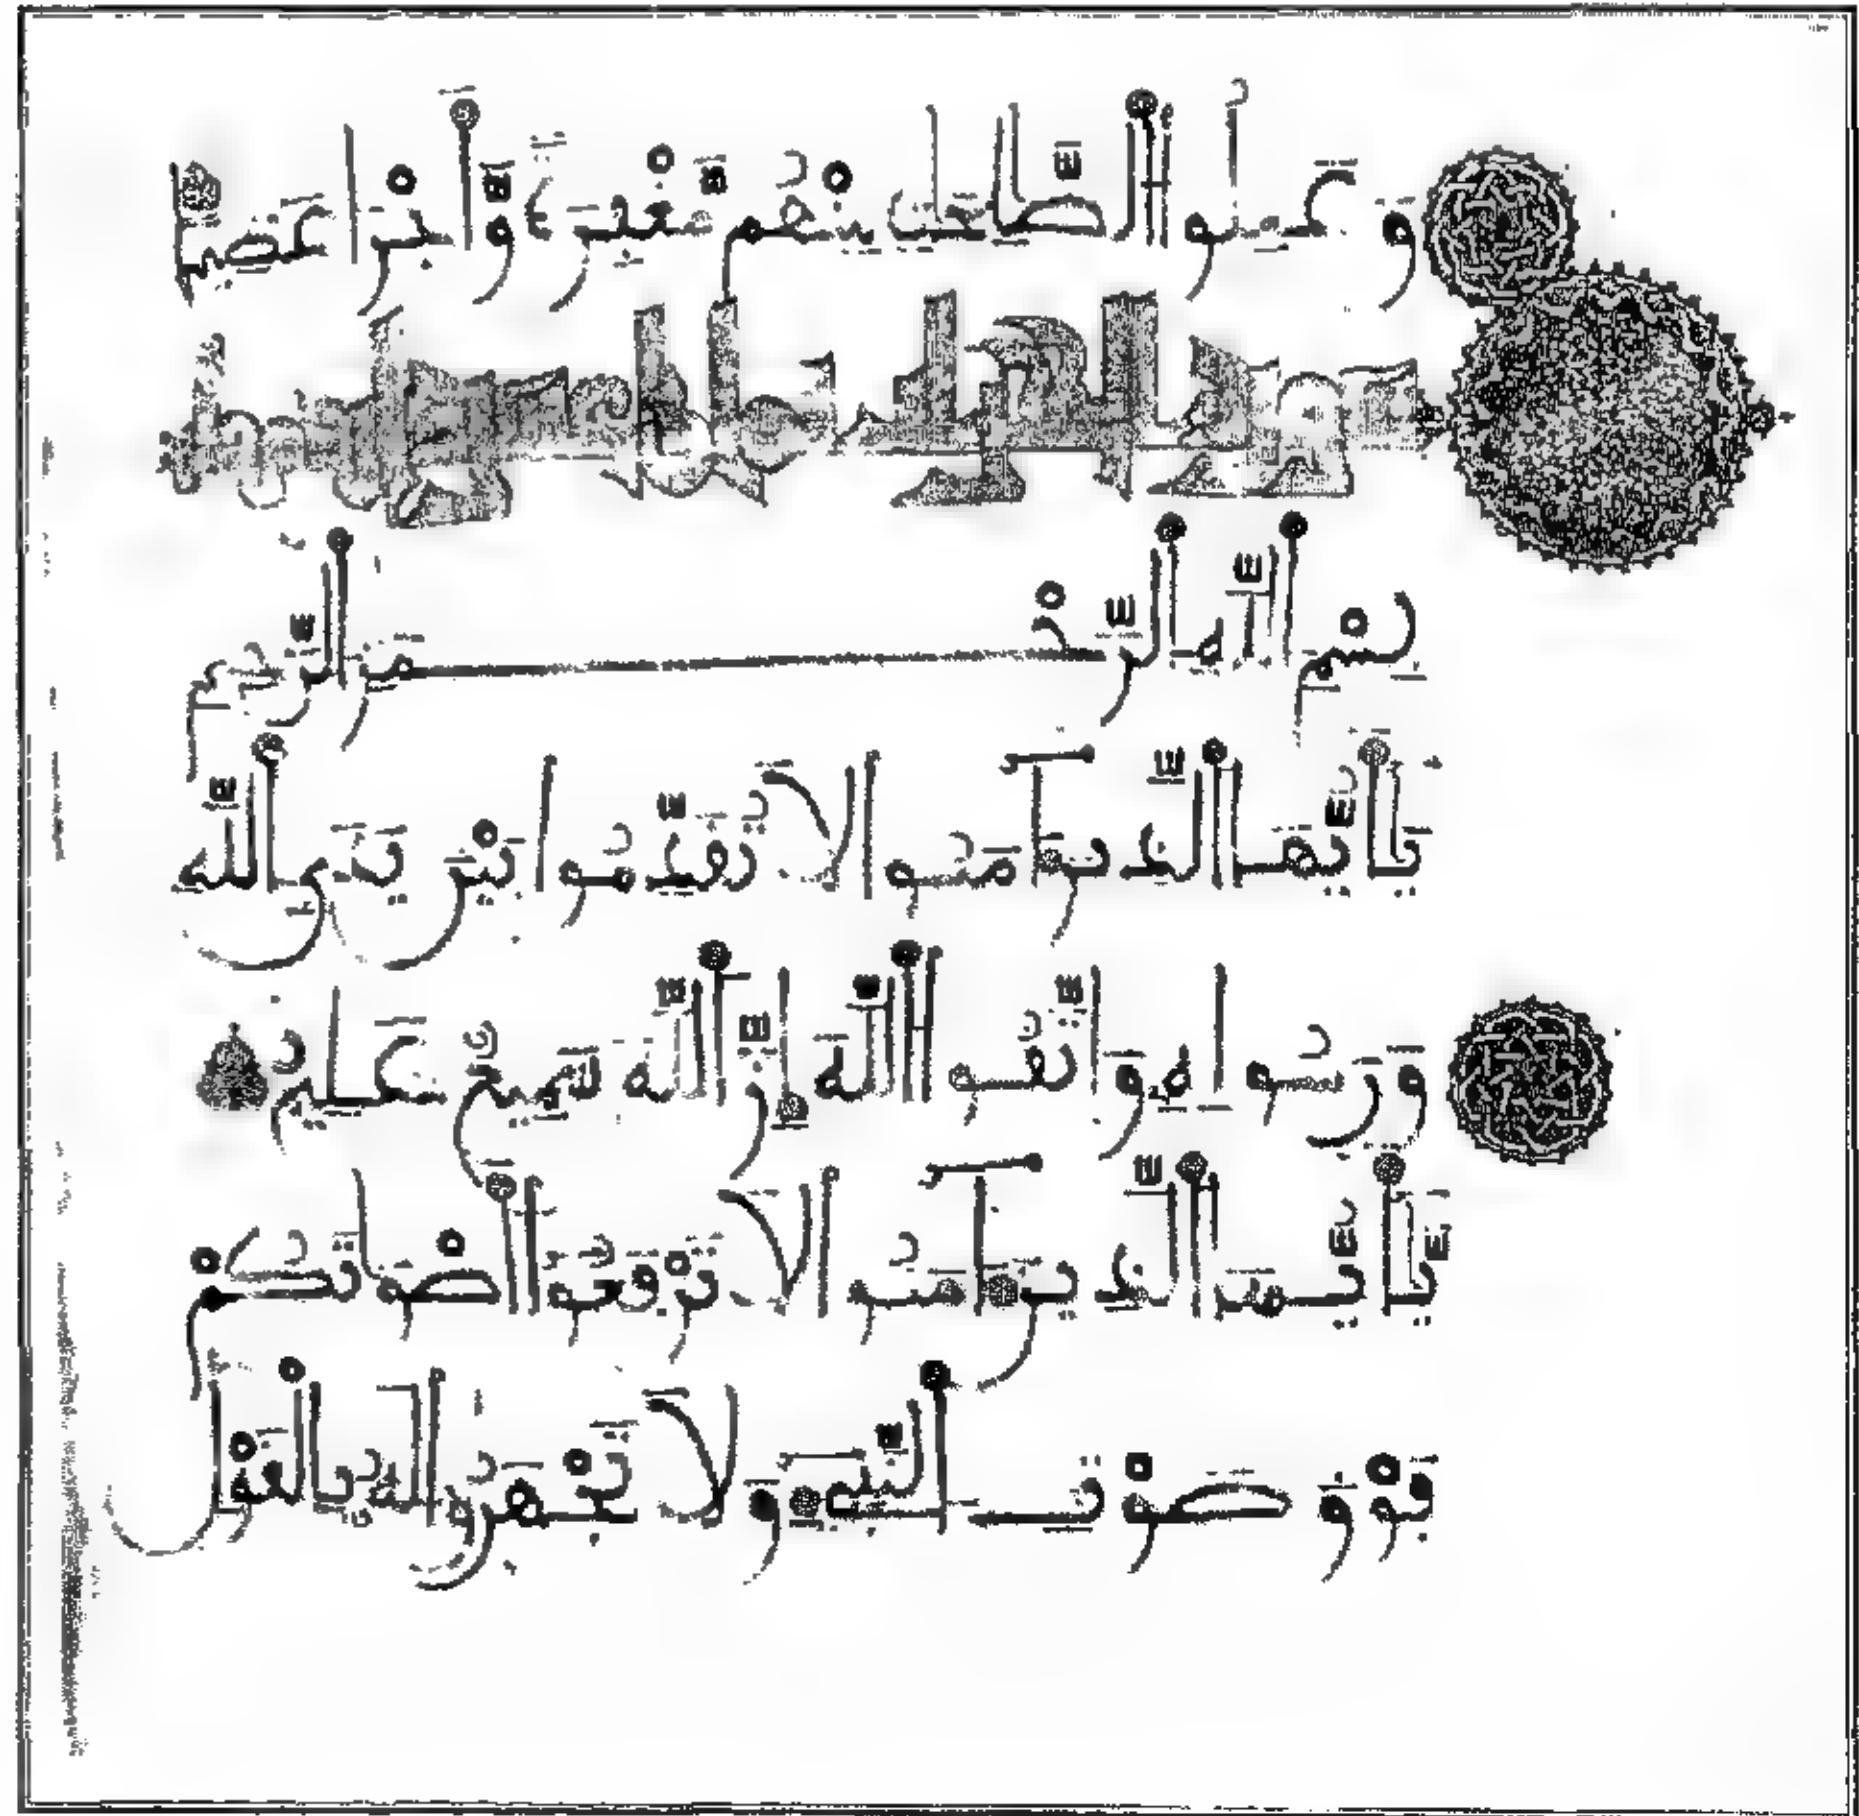 وَعَمِلُوا الصَّالِحَاتِ مِنْهُم مَّغْفِرَةً وَأَجْرًا عَظِيمًا
سورة الحجرات
بِسْمِ اللَّهِ الرَّحْمَنِ الرَّحِيمِ
يَا أَيُّهَا الَّذِينَ آمَنُوا لَا تُقَدِّمُوا بَيْنَ يَدَيِ اللَّهِ
وَرَسُولِهِ وَاتَّقُوا اللَّهَ إِنَّ اللَّهَ سَمِيعٌ عَلِيمٌ
يَا أَيُّهَا الَّذِينَ آمَنُوا لَا تَرْفَعُوا أَصْوَاتَكُمْ
فَوْقَ صَوْتِ النَّبِيءِ وَلَا تَجْهَرُوا لَهُ بِالْقَوْلِ